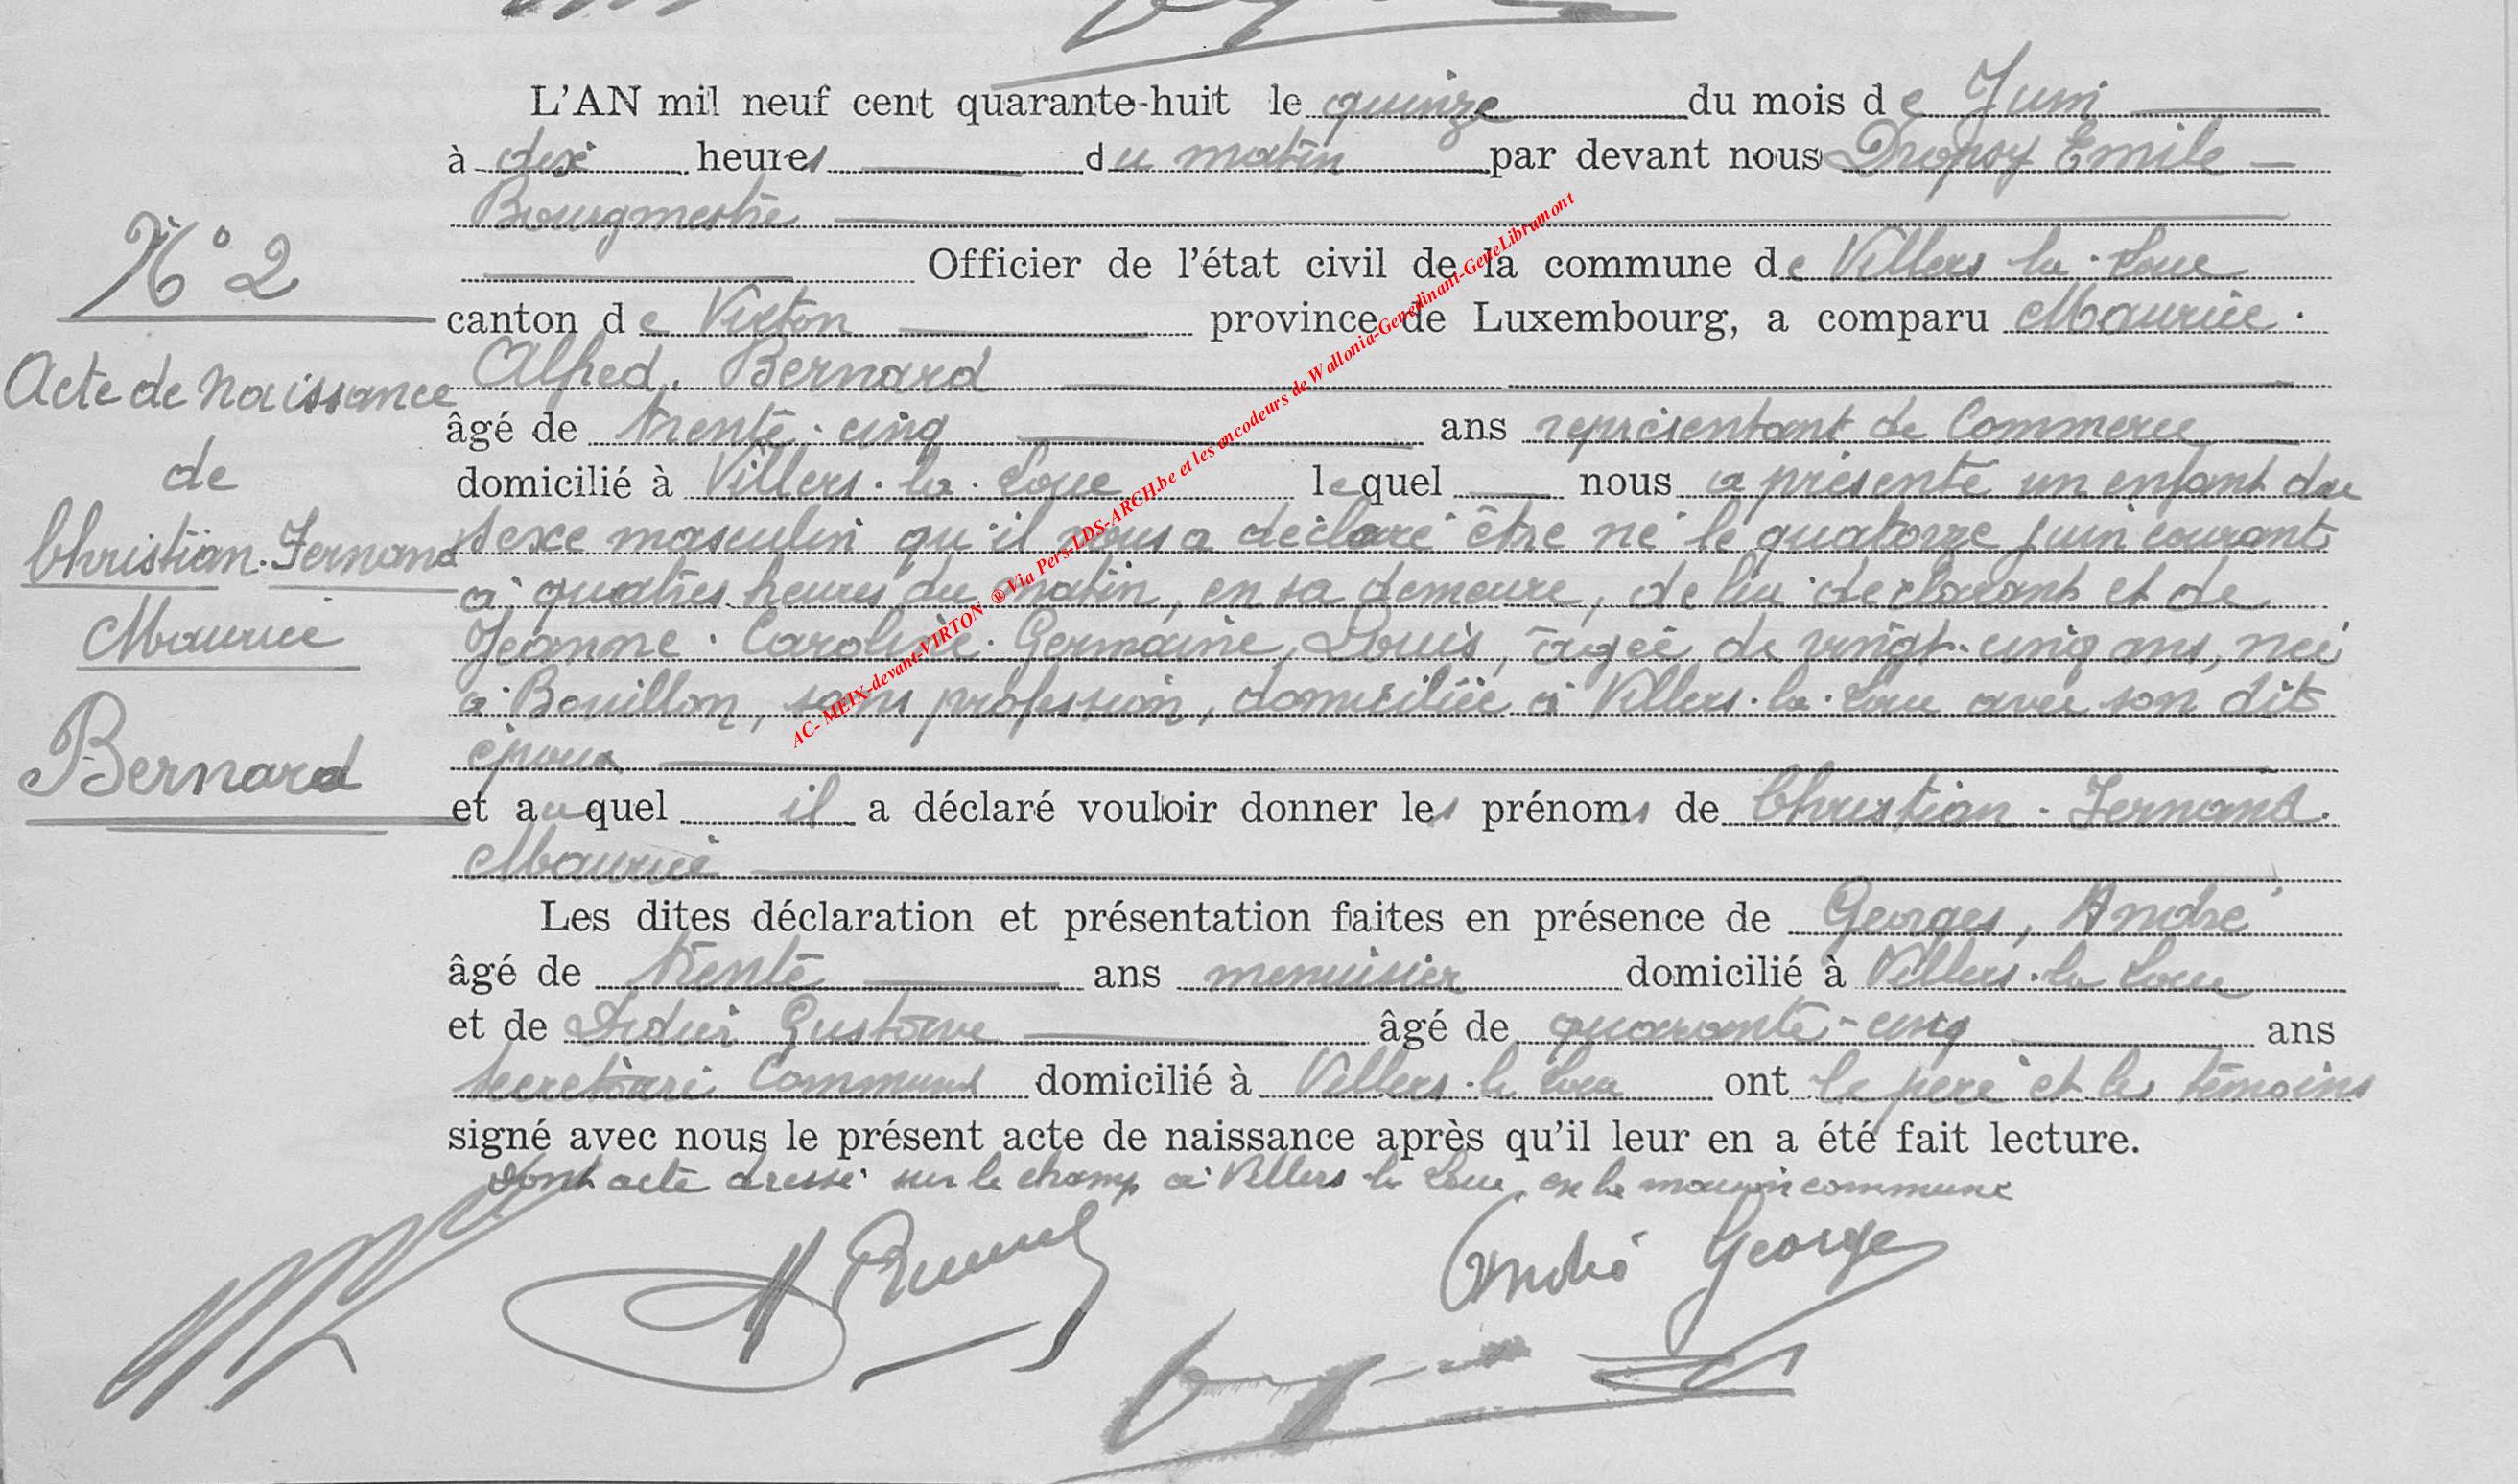 L'AN mil neuf cent quarante-huit le quinze du mois de Juin
à dix heures du matin par devant nous Dropsy Emile
Bourgmestre
Officier de l'état civil de la commune de Villers-la-Loue
canton de Virton province de Luxembourg, a comparu Maurice.
Alfred, Bernard
âgé de trente-cinq ans représentant de Commerce
domicilié à Villers-la-Loue lequel nous a présenté un enfant du
sexe masculin qu'il nous a déclaré être né le quatorze juin courant
à quatres heures du matin, en sa demeure, de lui déclarant et de
Jeanne-Caroline-Germaine, Louis, âgée de vingt-cinq ans, née
à Bouillon, sans profession, domiciliée à Villers-la-Loue avec son dits
époux
et auquel il a déclaré vouloir donner les prénoms de Christian-Fernand.
Maurice
Les dites déclaration et présentation faites en présence de Georges, André
âgé de trente ans menuisier domicilié à Villers-la-Loue
et de Didier Gustave âgé de quarante-cinq ans
secrétaire Communal domicilié à Villers-la-Loue ont le père et les témoins
signé avec nous le présent acte de naissance après qu'il leur en a été fait lecture.
Dont acte dressé sur le champ à Villers la Loue, en la maison commune
N° 2
Acte de Naissance
de
Christian-Fernand
Maurice
Bernard
André George
AC- MEIX-devant-VIRTON ® Via Pers-LDS-ARCH.be et les encodeurs de Wallonia-Genedinant-GeneLibramont